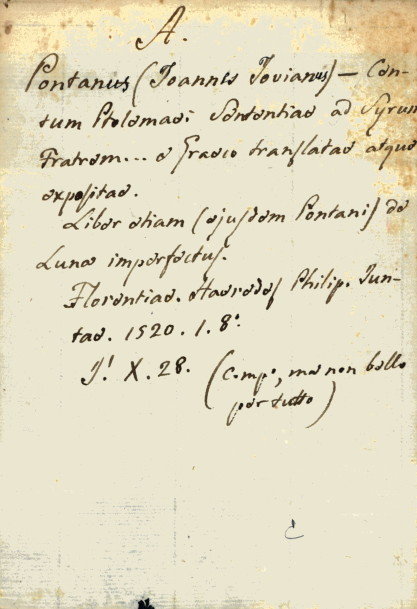 A.
Pontanus (Joannes Jovianus) — Cen-
tum Ptolemaei Sententiae ad Syrum
Fratrem... e Graeco translatae atque
expositae.
Liber etiam (ejusdem Pontani) de
Luna imperfectus.
Florentiae. Haeredes Philip. Jun-
tae. 1520. 1. 8.°
X. 28. (Comp.°, ma non bello
per tutto)